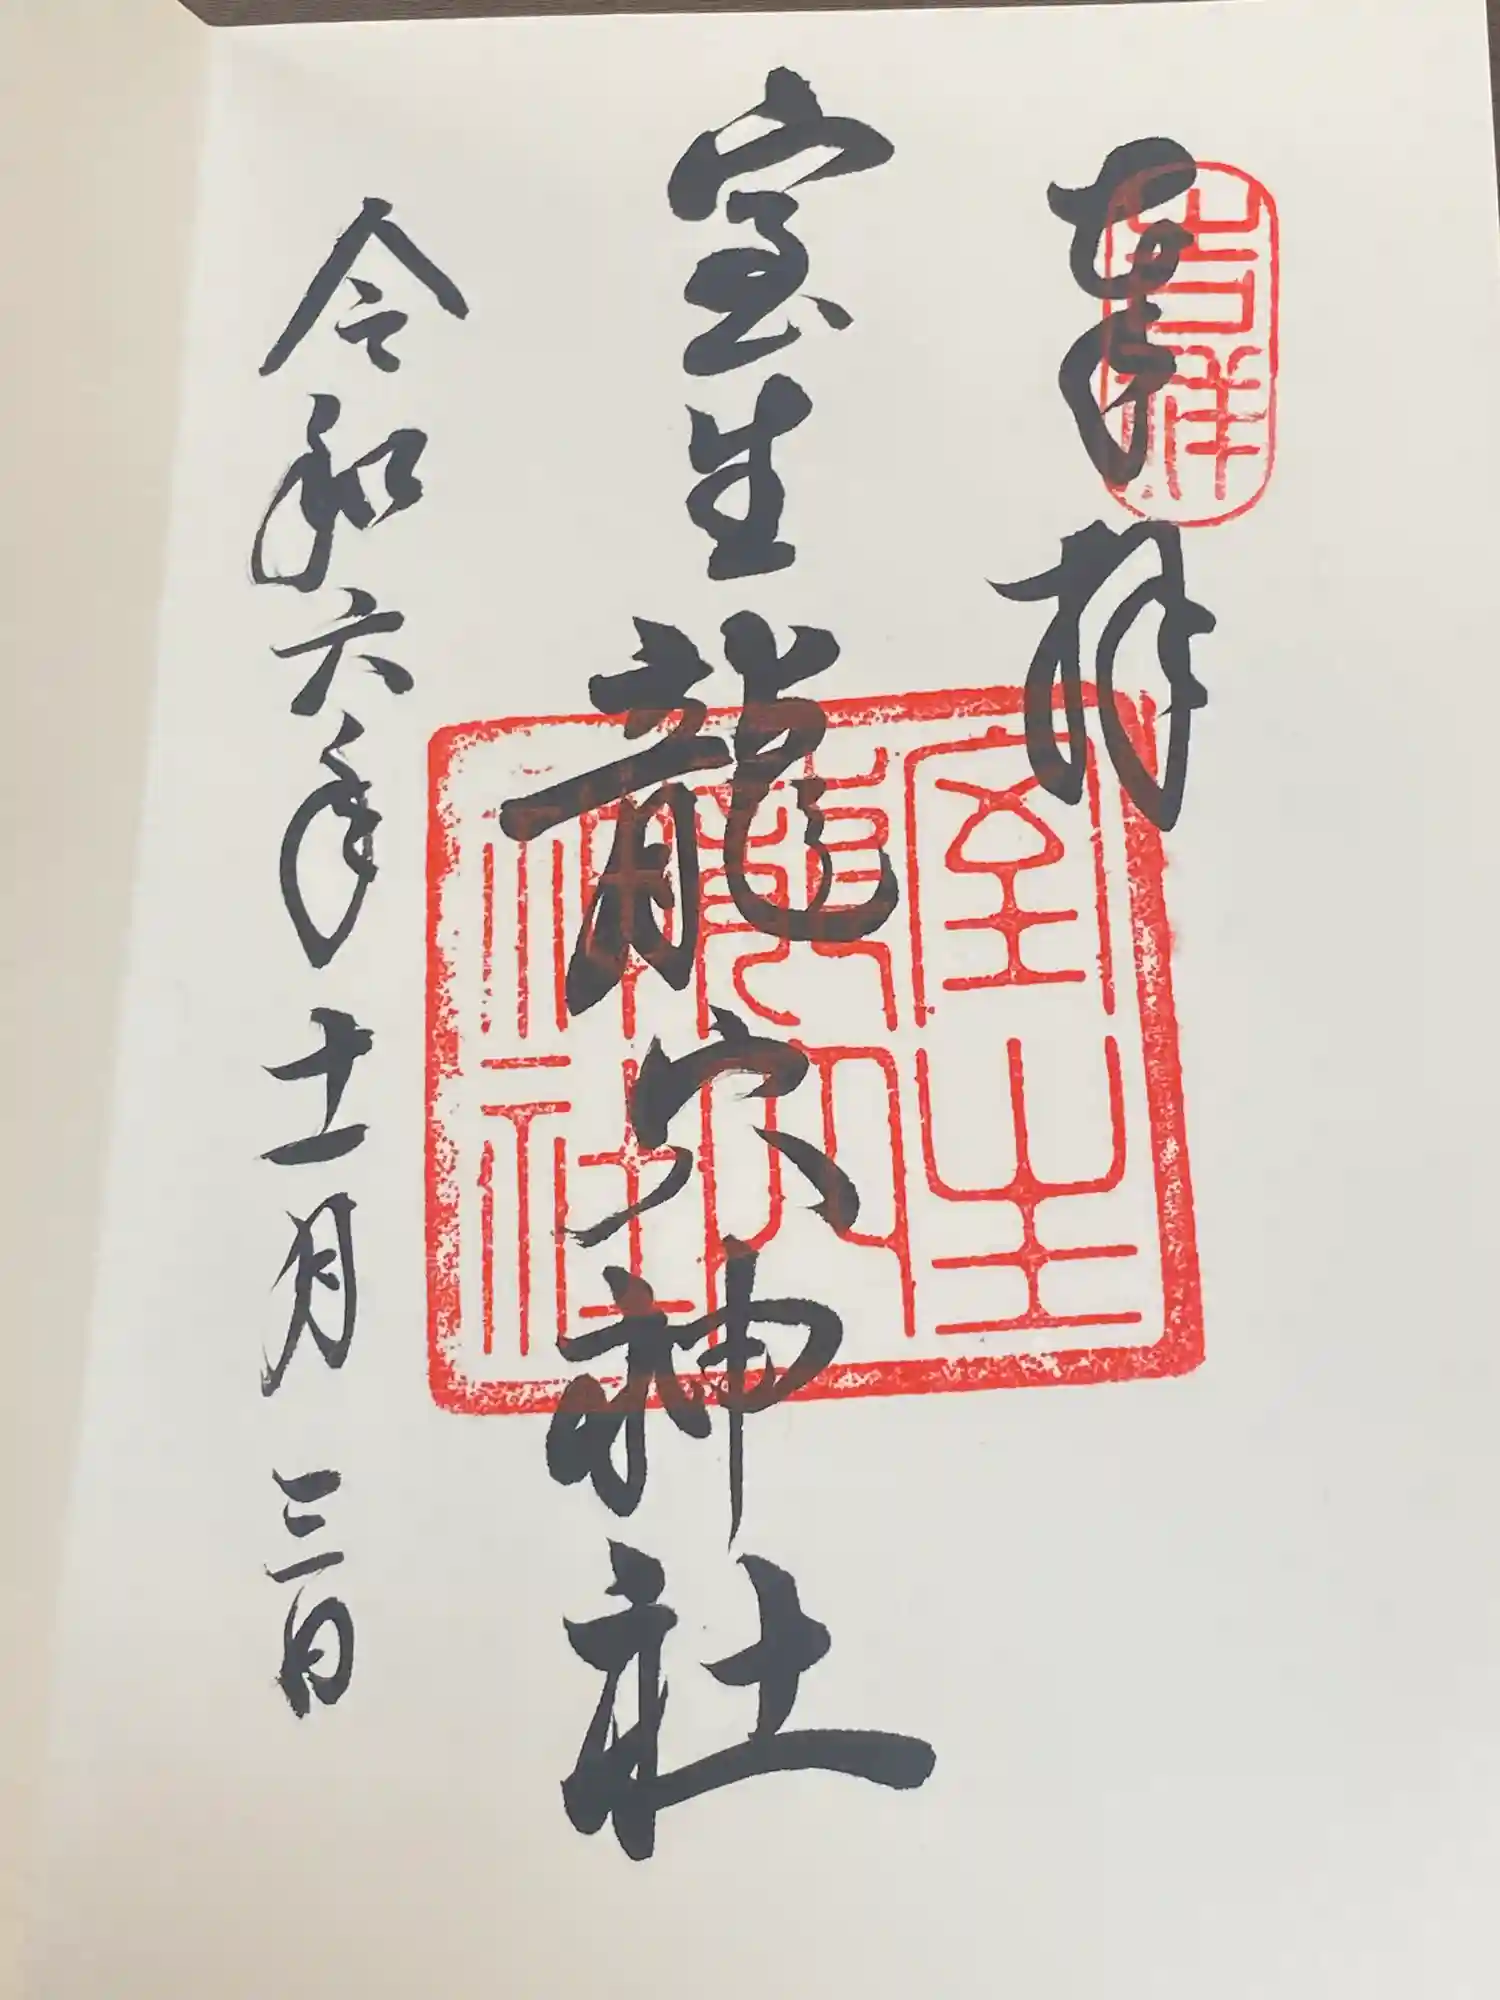 奉拝
吉祥
室生龍穴神社
室生
龍穴
神社
令和六年十一月三日